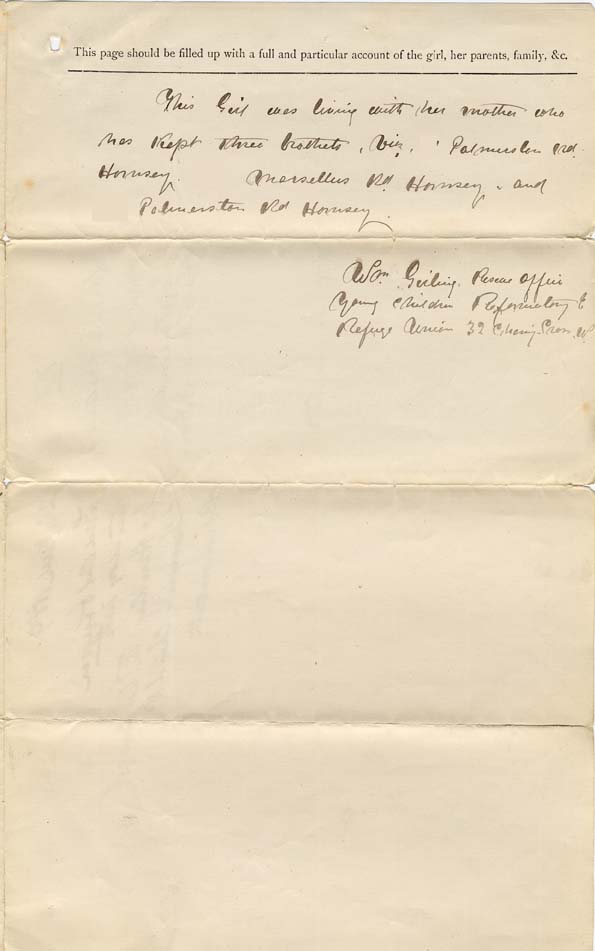 This page should be filled up with a full and particular account of the girl, her parents, family, &c.
This Girl was living with her mother who
has kept three brothels, Viz, Palmerston Rd.
Hornsey. Marsellus Rd. Hornsey, and
Palmerston Rd Hornsey.
Wm. Rescue Officer
Young Children Reformatory &
Refuge Union 32 Charing Cross